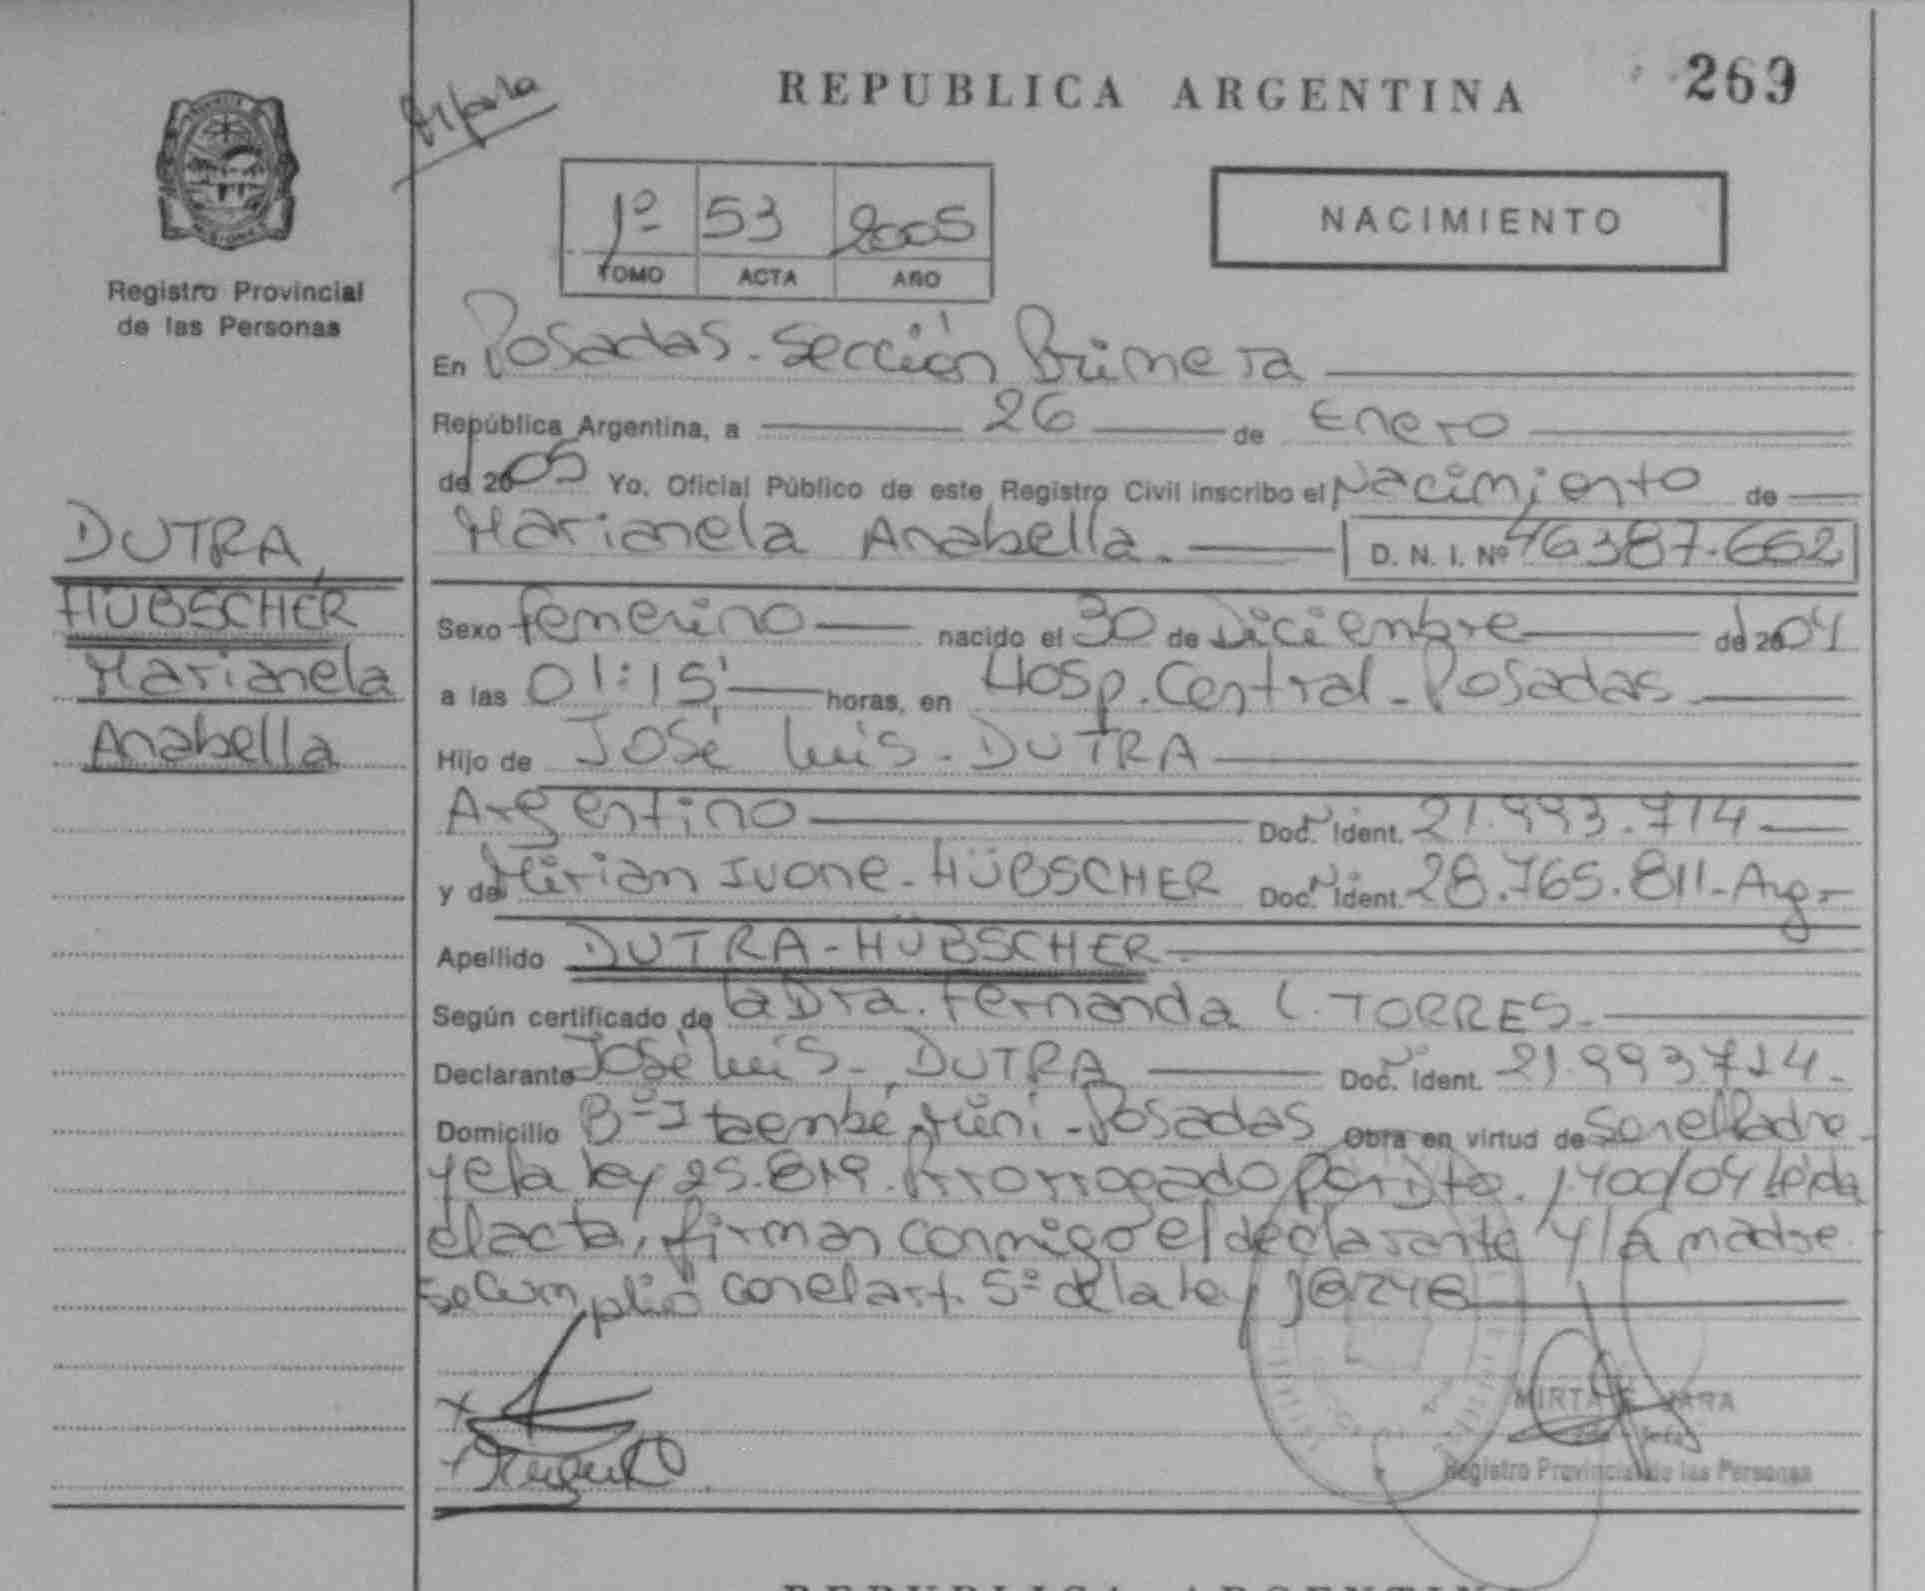 REPUBLICA ARGENTINA
269
1º 53 2005
TOMO ACTA AÑO
NACIMIENTO
Registro Provincial
de las Personas
En Posadas - Sección Primera
República Argentina, a 26 de Enero
de 2005 Yo, Oficial Público de este Registro Civil inscribo el Nacimiento de
Marianela Anabella. D. N. I. Nº 46387.662
DUTRA,
HÜBSCHER
Marianela
Anabella
Sexo femenino nacido el 30 de Diciembre de 2004
a las 01:15' horas, en Hosp. Central - Posadas
Hijo de José Luis - DUTRA
Argentino Doc. Ident. 21.993.714
y de Mirian Ivone - HÜBSCHER Doc. Ident. 28.765.811 - Arg -
Apellido DUTRA - HÜBSCHER -
Según certificado de la Dra. Fernanda C. TORRES -
Declarante José Luis - DUTRA Doc. Ident. 21.993714 -
Domicilio Bº Itaembé Mini - Posadas Obra en virtud de Ser el Padre
y de la ley 25.819. Prorrogado por Dto. 1400/04 Leída
el acta, firman conmigo el declarante y la madre
se cumplió con el art. 5º de la ley
MIRTA JARA
Registro Provincial de las Personas